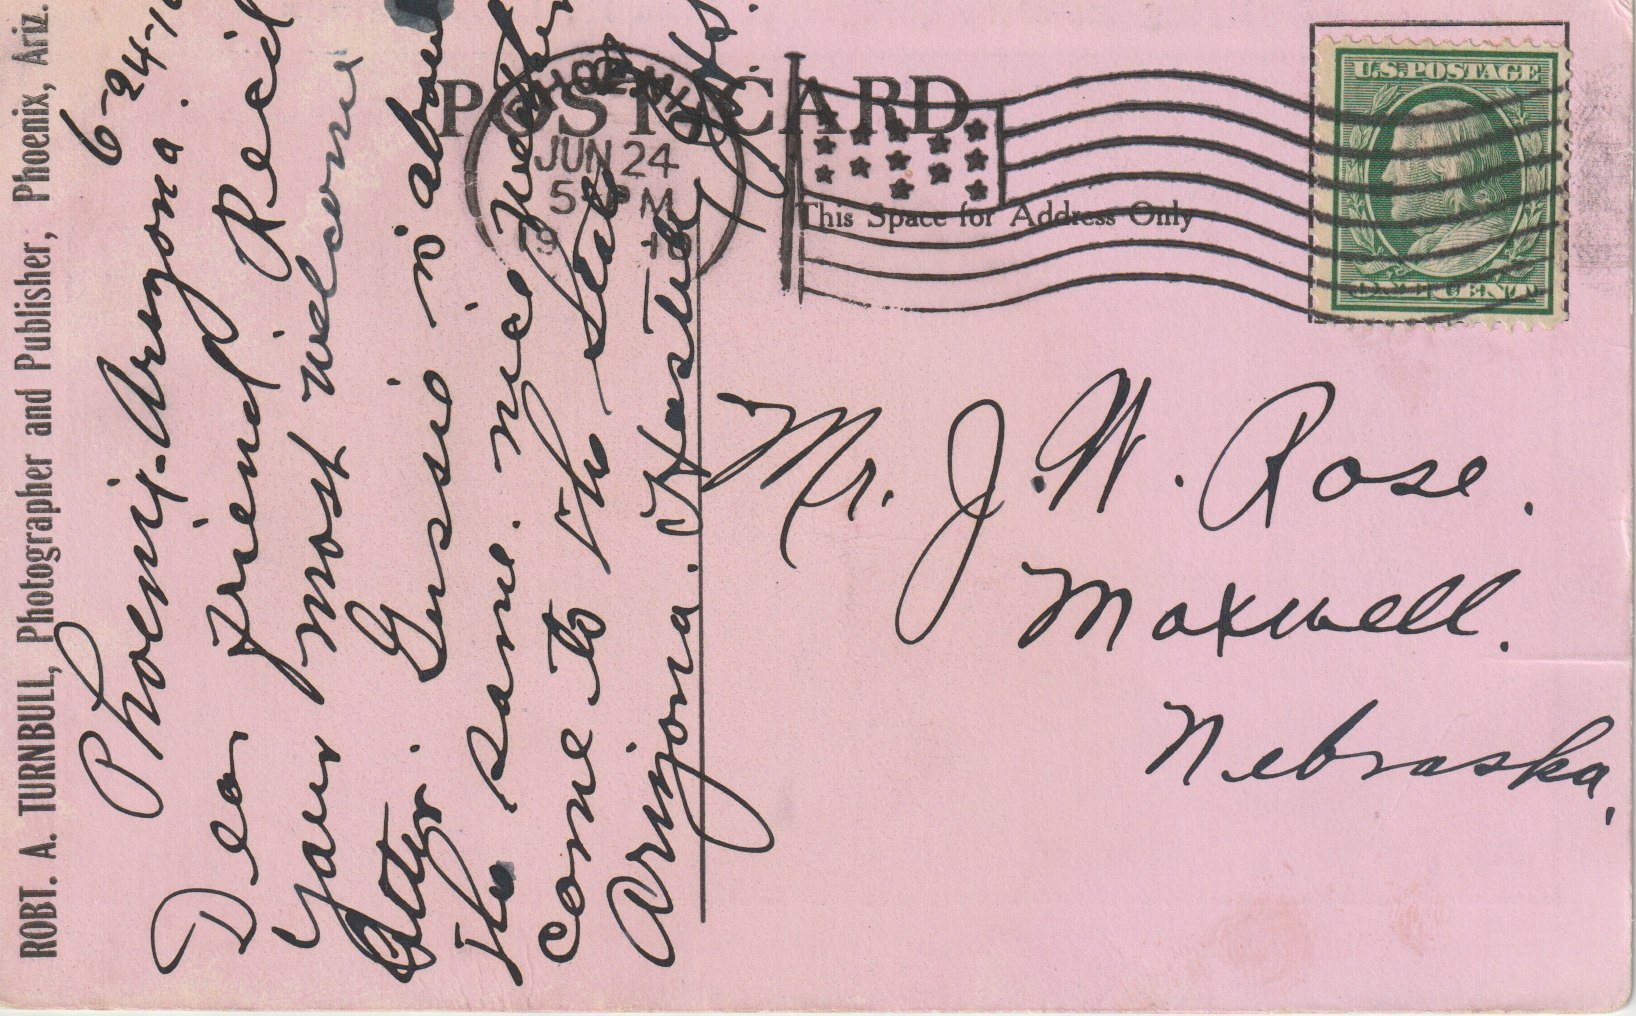 ROBT. A. TURNBULL, Photographer and Publisher, Phoenix, Ariz.
Phoenix-Arizona. 6-24-1
Dear Friend Recd
Your most welcome
letter. Gussie is about
the same. nice
come to the
Arizona.
POST CARD
JUN 24
5 PM
19 10
This Space for Address Only
U.S. POSTAGE
ONE CENT
Mr. J. W. Rose.
Maxwell.
Nebraska.